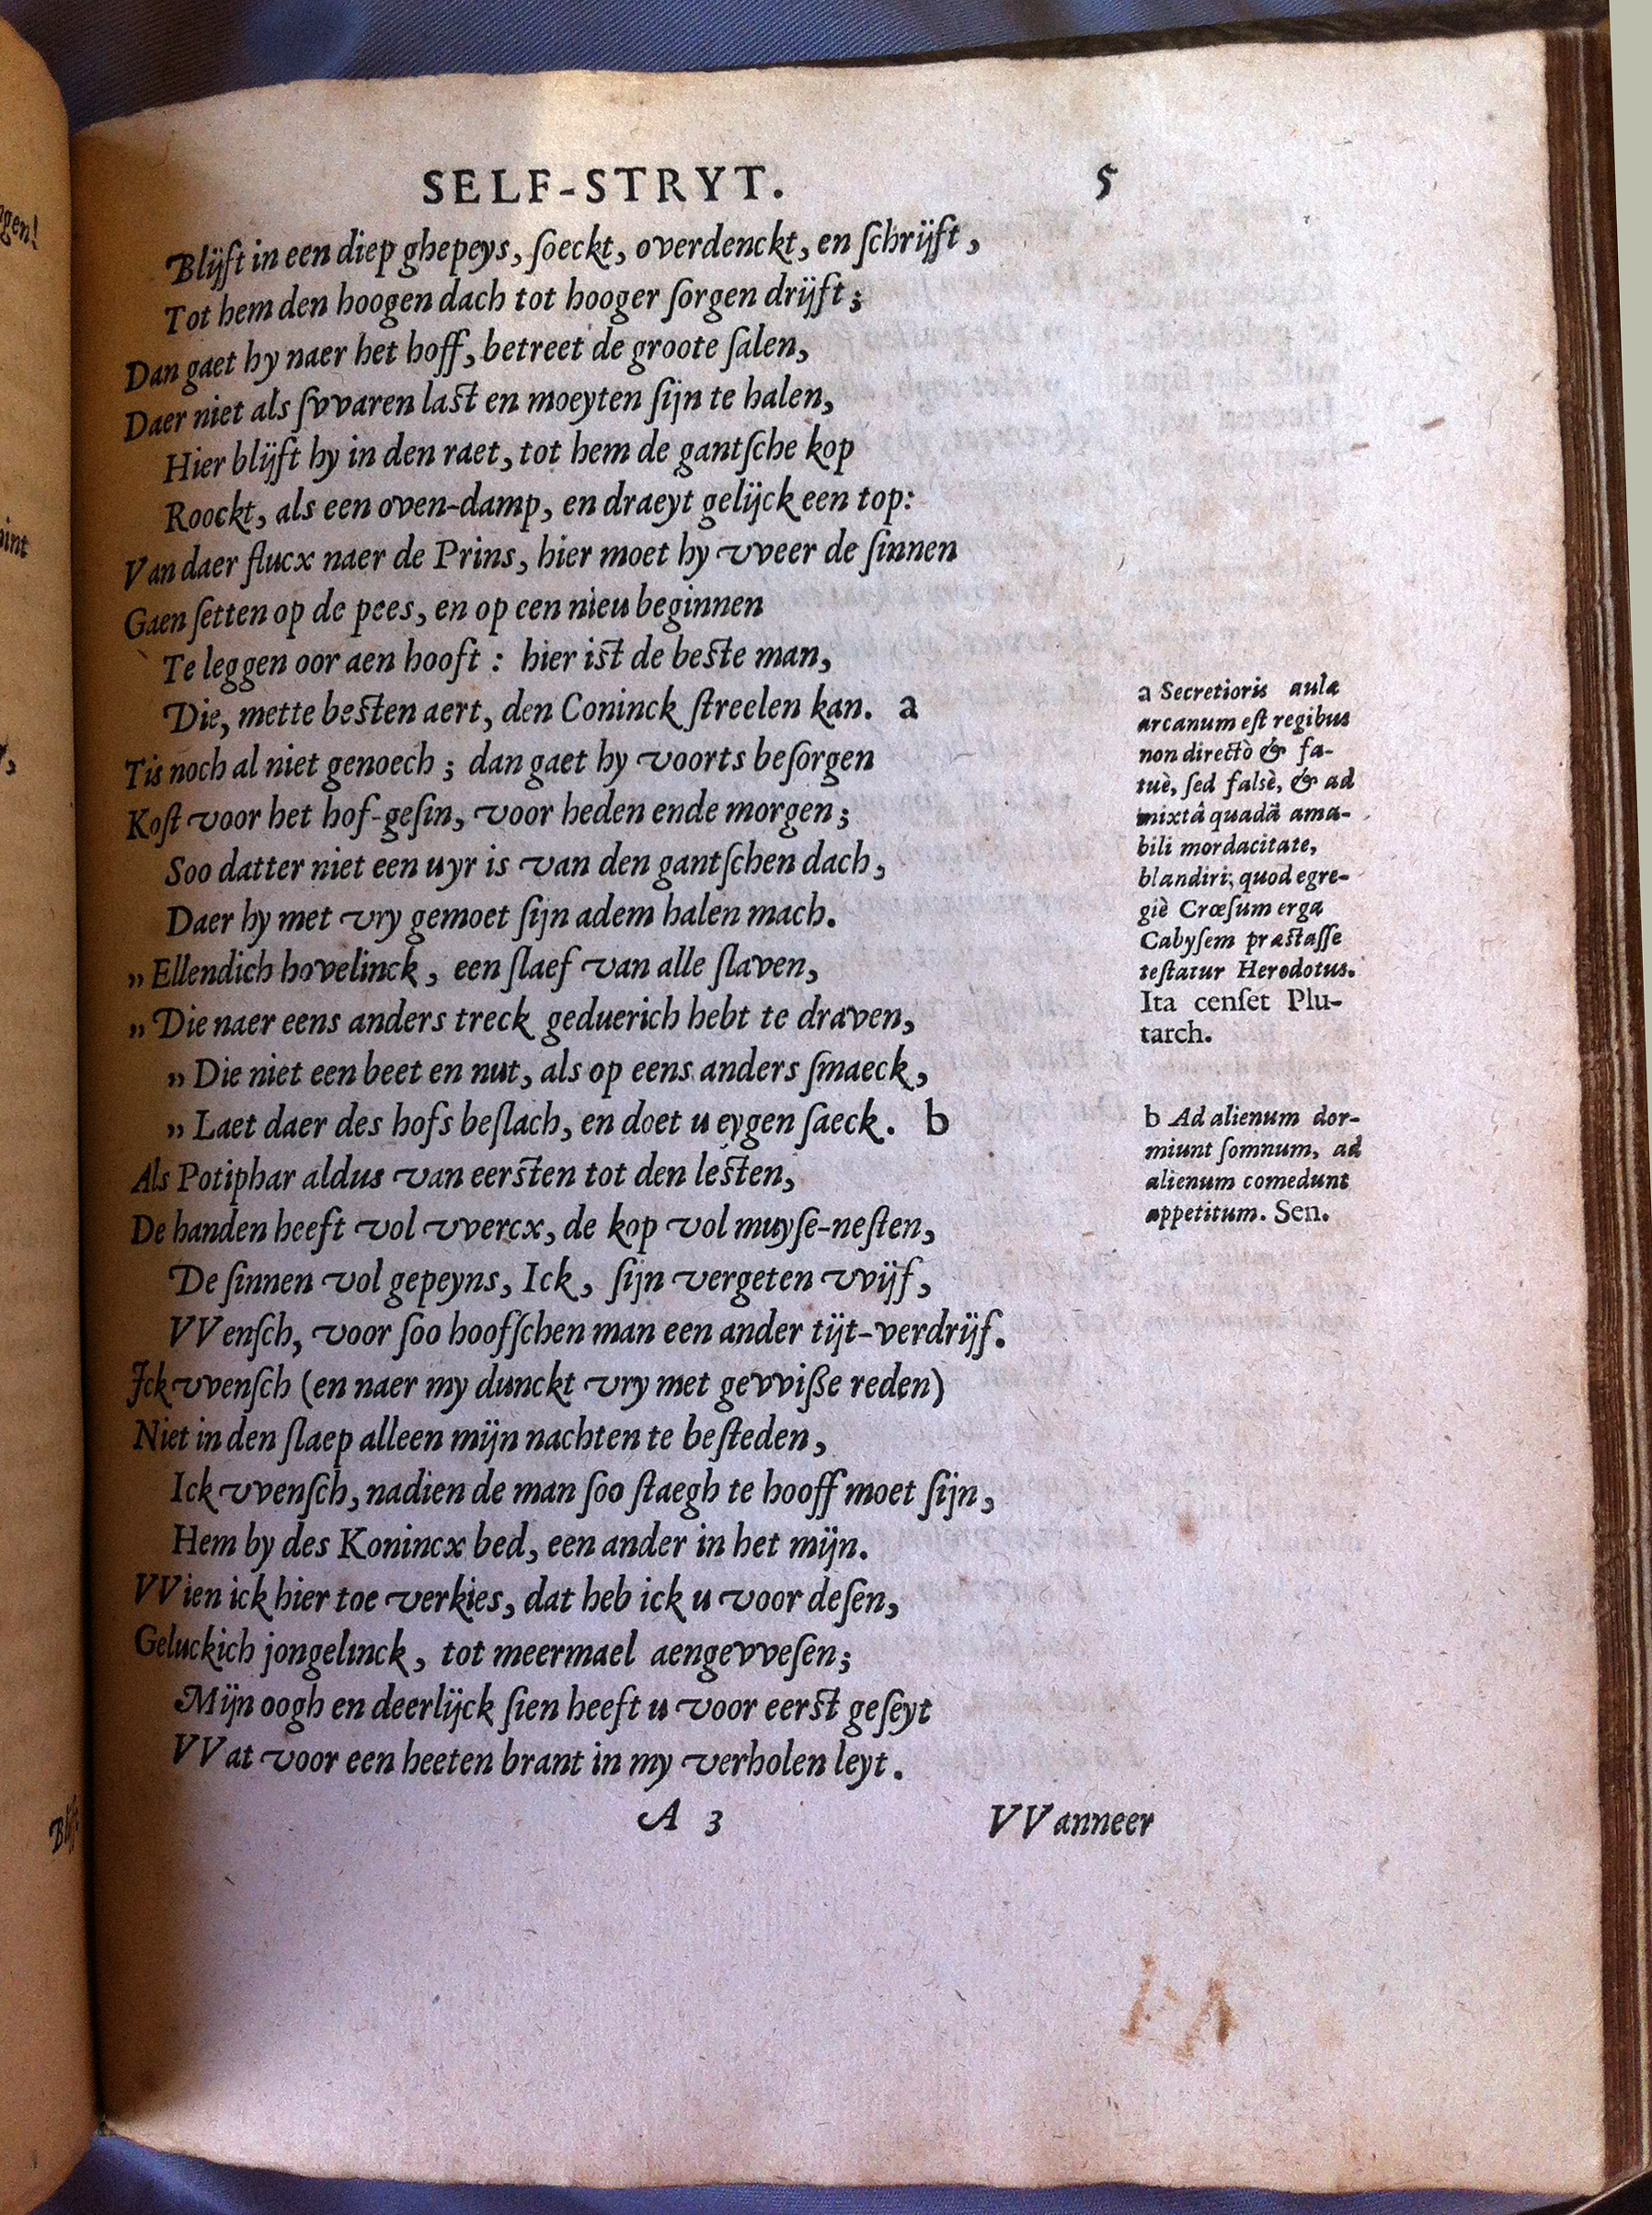 SELF-STRYT. 5
Blijft in een diep ghepeys, ſoeckt, overdenckt, en ſchrijft,
Tot hem den hoogen dach tot hooger ſorgen drijft;
Dan gaet hy naer het hoff, betreet de groote ſalen,
Daer niet als ſvvaren laſt en moeyten ſijn te halen,
Hier blijft hy in den raet, tot hem de gantſche kop
Roockt, als een oven-damp, en draeyt gelijck een top:
Van daer flucx naer de Prins, hier moet hy vveer de ſinnen
Gaen ſetten op de pees, en op een nieu beginnen
Te leggen oor aen hooft : hier iſt de beſte man,
Die, mette beſten aert, den Coninck ſtreelen kan. a
Tis noch al niet genoech ; dan gaet hy voorts beſorgen
Koſt voor het hof-geſin, voor heden ende morgen;
Soo datter niet een uyr is van den gantſchen dach,
Daer hy met vry gemoet ſijn adem halen mach.
„Ellendich hovelinck, een ſlaef van alle ſlaven,
„Die naer eens anders treck geduerich hebt te draven,
„Die niet een beet en nut, als op eens anders ſmaeck,
„Laet daer des hofs beſlach, en doet u eygen ſaeck. b
Als Potiphar aldus van eerſten tot den leſten,
De handen heeft vol vvercx, de kop vol muyſe-neſten,
De ſinnen vol gepeyns, Ick, ſijn vergeten vvijf,
VVenſch, voor ſoo hoofſchen man een ander tijt-verdrijf.
Ick vvenſch (en naer my dunckt vry met gevviſſe reden)
Niet in den ſlaep alleen mijn nachten te beſteden,
Ick vvenſch, nadien de man ſoo ſtaegh te hooff moet ſijn,
Hem by des Konincx bed, een ander in het mijn.
VVien ick hier toe verkies, dat heb ick u voor deſen,
Geluckich jongelinck, tot meermael aengevveſen;
Mijn oogh en deerlijck ſien heeft u voor eerſt geſeyt
VVat voor een heeten brant in my verholen leyt.
A 3 VVanneer
a Secretioris aulæ
arcanum eſt regibus
non directò & fa-
tuè, ſed falsè, & ad
mixtâ quadã ama-
bili mordacitate,
blandiri; quod egre-
giè Crœſum erga
Cabyſem præſtaſſe
teſtatur Herodotus.
Ita cenſet Plu-
tarch.
b Ad alienum dor-
miunt ſomnum, ad
alienum comedunt
appetitum. Sen.